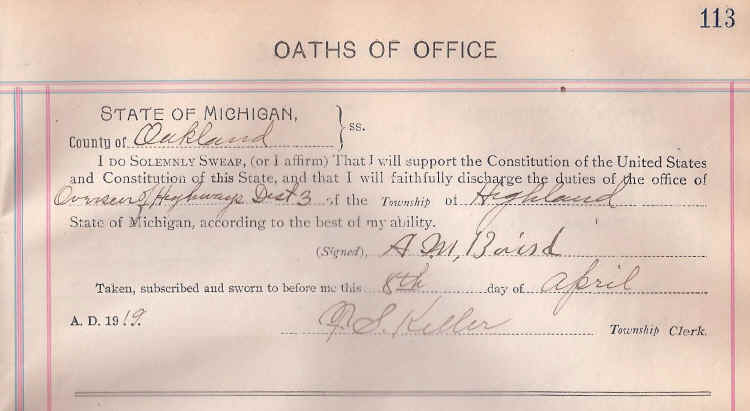 113
OATHS OF OFFICE
STATE OF MICHIGAN,
County of Oakland } ss.
I DO SOLEMNLY SWEAR, (or I affirm) That I will support the Constitution of the United States
and Constitution of this State, and that I will faithfully discharge the duties of the office of
Overseer of Highways Dist 3 of the Township of Highland
State of Michigan, according to the best of my ability.
(Signed), A M, Baird
Taken, subscribed and sworn to before me this 8th day of April
A. D. 1919. S. Keller Township Clerk.